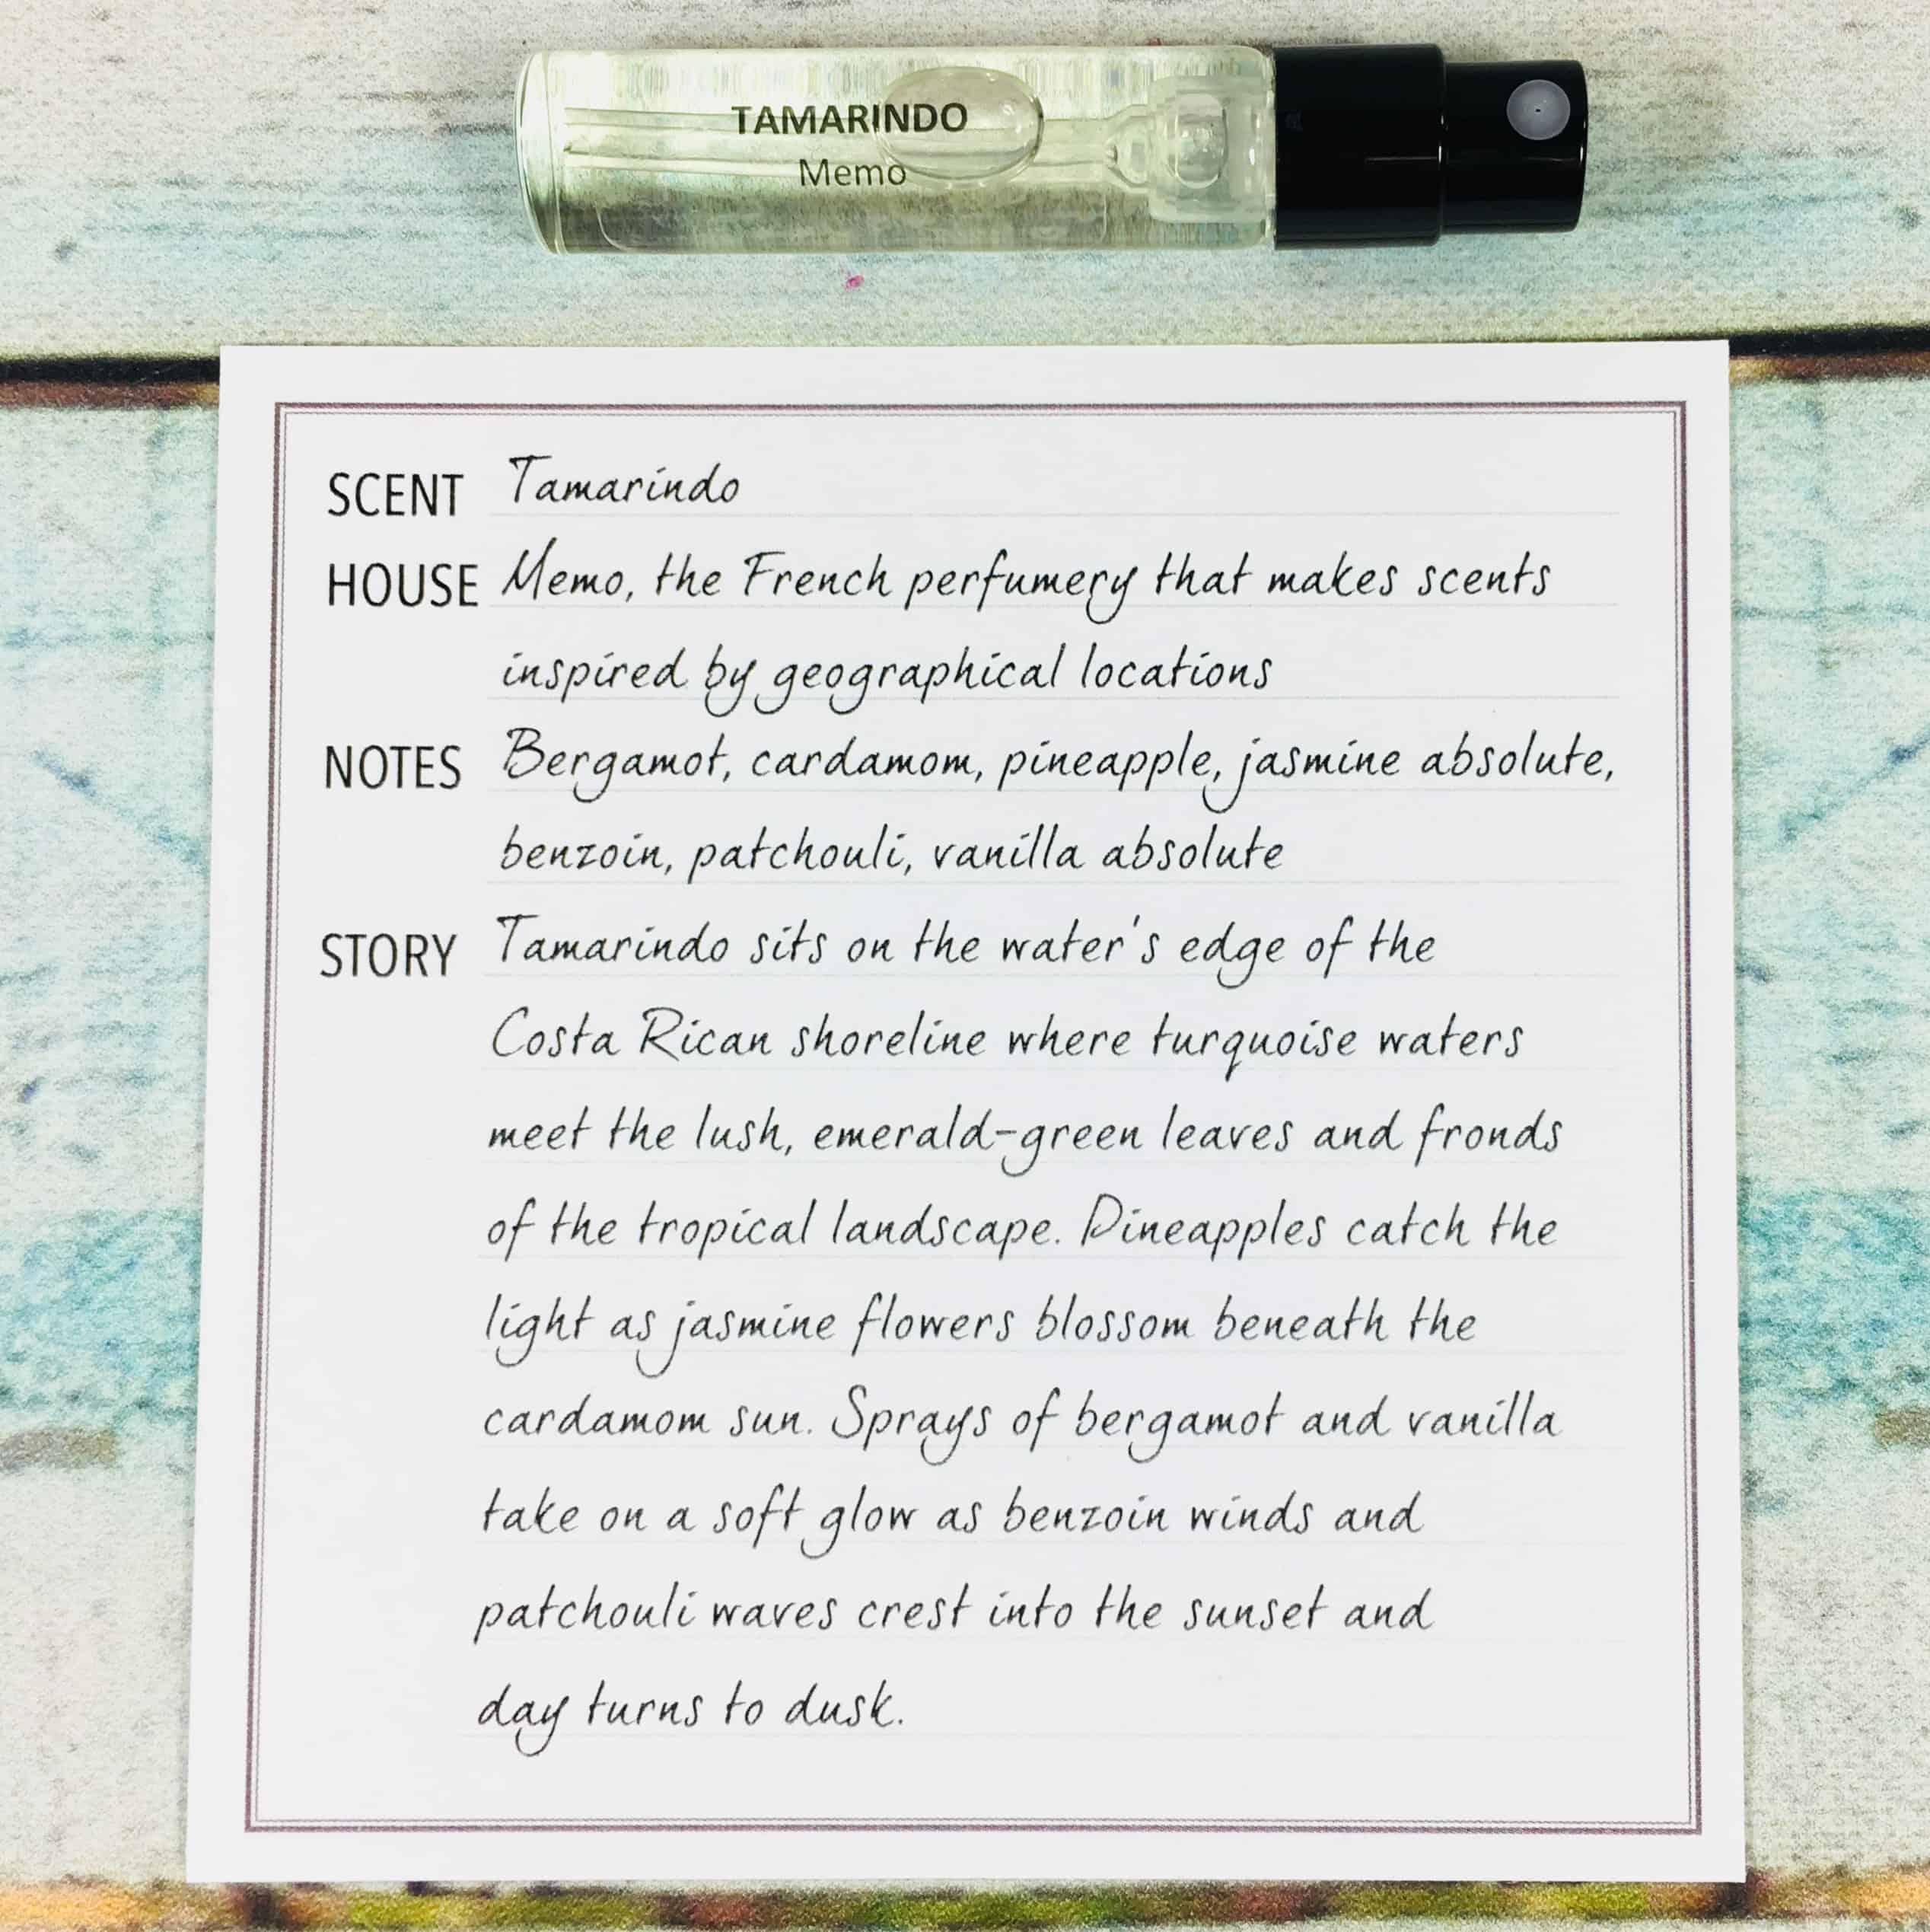 TAMARINDO
Memo
SCENT Tamarindo
HOUSE Memo, the French perfumery that makes scents
inspired by geographical locations
NOTES Bergamot, cardamom, pineapple, jasmine absolute,
benzoin, patchouli, vanilla absolute
STORY Tamarindo sits on the water's edge of the
Costa Rican shoreline where turquoise waters
meet the lush, emerald-green leaves and fronds
of the tropical landscape. Pineapples catch the
light as jasmine flowers blossom beneath the
cardamom sun. Sprays of bergamot and vanilla
take on a soft glow as benzoin winds and
patchouli waves crest into the sunset and
day turns to dusk.